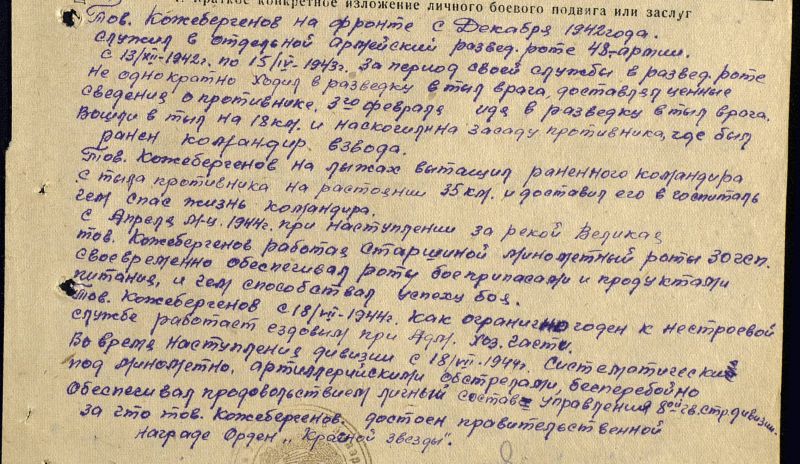 1. Краткое конкретное изложение личного боевого подвига или заслуг
Тов. Кожебергенов на фронте с Декабря 1942 года.
служил в отдельной армейский развед. роте 48-армии.
с 13/XII-1942г. по 15/IV-1943г. За период своей службы в развед. роте
не однократно ходил в разведку в тыл врага, доставлял ценные
сведения о противнике. 3го февраля идя в разведку в тыл врага.
Вошли в тыл на 18 км. и наскочили на засаду противника, где был
ранен командир взвода.
Тов. Кожебергенов на лыжах вытащил раненного командира
с тыла противника на растоянии 35 км. и доставил его в госпиталь
чем спас жизнь командира.
С Апреля м-ц. 1944г. при наступлении за рекой Великая
тов. Кожебергенов работая старшиной минометный роты 30 гсп.
своевременно обеспечивал роту боеприпасами и продуктами
питания, и чем способствал успеху боя.
Тов. Кожебергенов с 18/VII-1944г. как ограничено годен к нестроевой
службе работает ездовим при Адм. Хоз. части.
Во время наступления дивизии с 18/VII-1944г. Систематический
под минометно, артиллерийскими обстрелами, бесперебойно
обеспечивал продовольствием личный состав управления 8ой гв. стр. дивизии.
За что тов. Кожебергенов. достоен правительственной
награде Орден „Красной звезды".